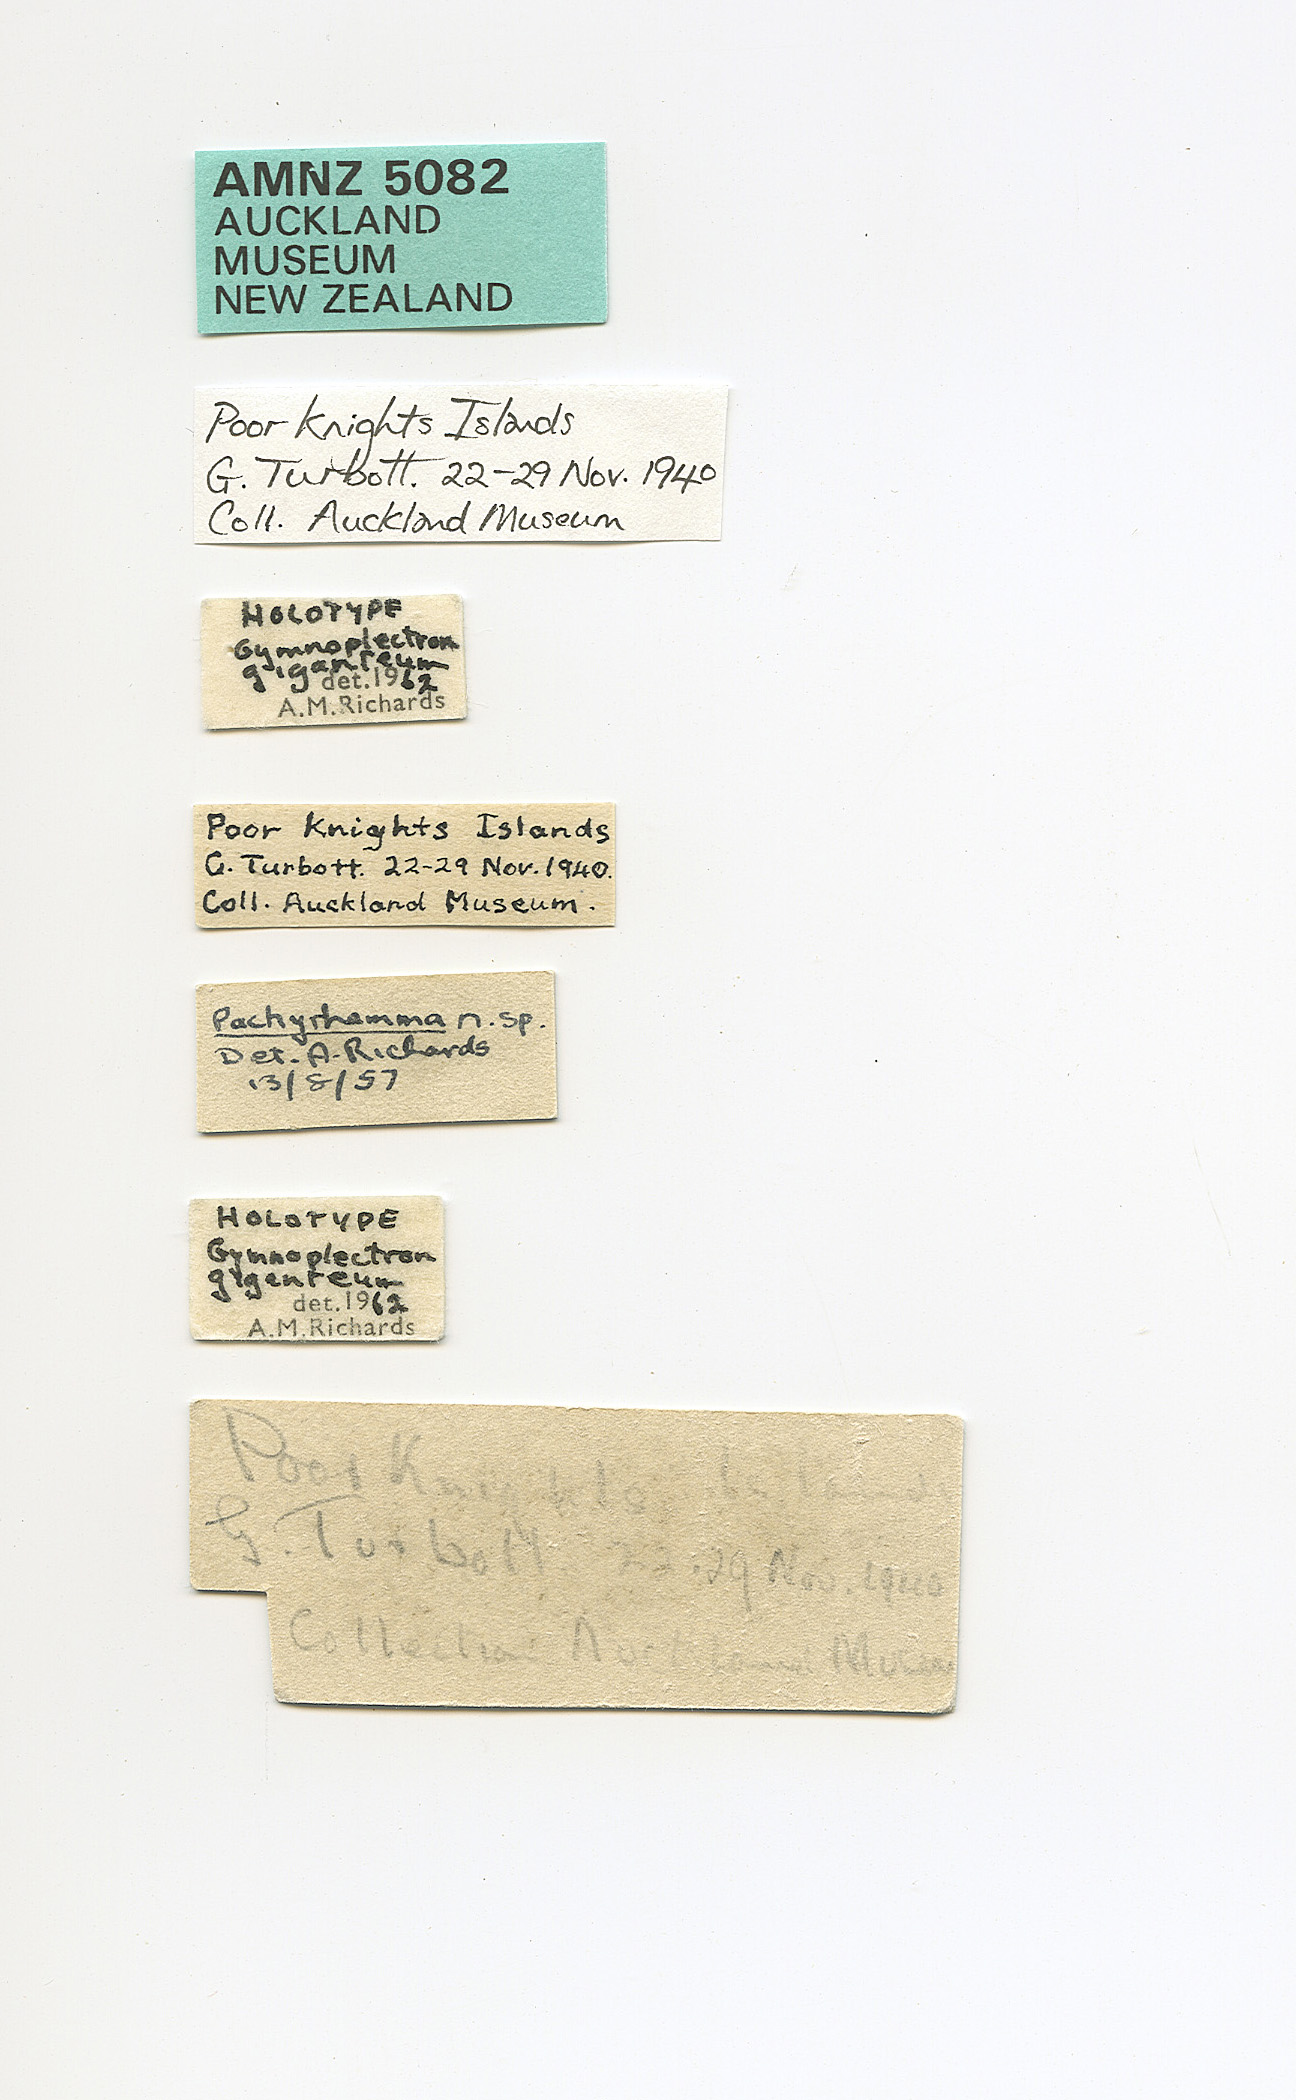 AMNZ 5082
AUCKLAND
MUSEUM
NEW ZEALAND
Poor Knights Islands
G. Turbott. 22-29 Nov. 1940
Coll. Auckland Museum
HOLOTYPE
Gymnoplectron
giganteum
det.1962
A.M.Richards
Poor Knights Islands
G. Turbott. 22-29 Nov. 1940.
Coll. Auckland Museum.
Pachyrhamma n. sp.
Det. A. Richards
13/8/57
HOLOTYPE
Gymnoplectron
giganteum
det.1962
A.M.Richards
Poor Knights Islands
G. Turbott 22-29 Nov. 1940
Museum